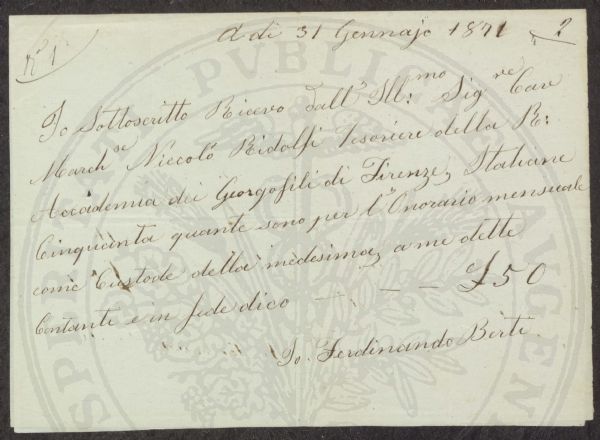 N.º 1.
A dì 31 Gennajo 1871
2
Io Sottoscritto Ricevo dall' Ill:mo Sig.re Cav
March.se Niccolò Ridolfi Tesoriere della R:
Accademia dei Georgofili di Firenze, Italiane
Cinquanta quante sono per l'Onorario mensuale
come Custode della medesima, a me dette
Contanti e in fede dico — — — £50
Io. Ferdinando Berti
PUBLICAE
PROSPERITATI
AUGENDAE